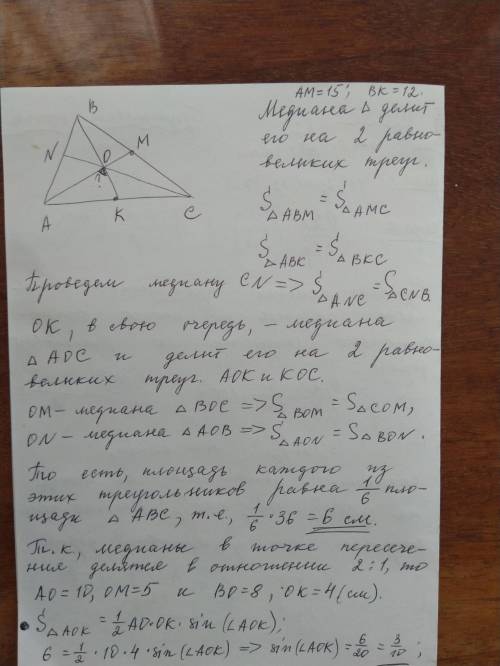 AM=15; BK=12.
Медиана △ делит
его на 2 равно-
великих треуг.
B
N
M
O
?
A
K
C
S△ABM = S△AMC
S△ABK = S△BKC
Проведем медиану CN => S△ANC = S△CNB.
OK, в свою очередь, – медиана
△AOC и делит его на 2 равно-
великих треуг. AOK и KOC.
OM – медиана △BOC => S△BOM = S△COM,
ON – медиана △AOB => S△AON = S△BON.
То есть, площадь каждого из
этих треугольников равна 1/6 пло-
щади △ABC, т.е., 1/6 · 36 = 6 см.
Т.к, медианы в точке пересече-
ние делятся в отношении 2:1, то
AO=10, OM=5 и BO=8, OK=4(см).
S△AOK = 1/2 AO·OK·sin(∠AOK);
6 = 1/2 · 10 · 4 · sin(∠AOK) => sin(∠AOK) = 6/20 = 3/10;